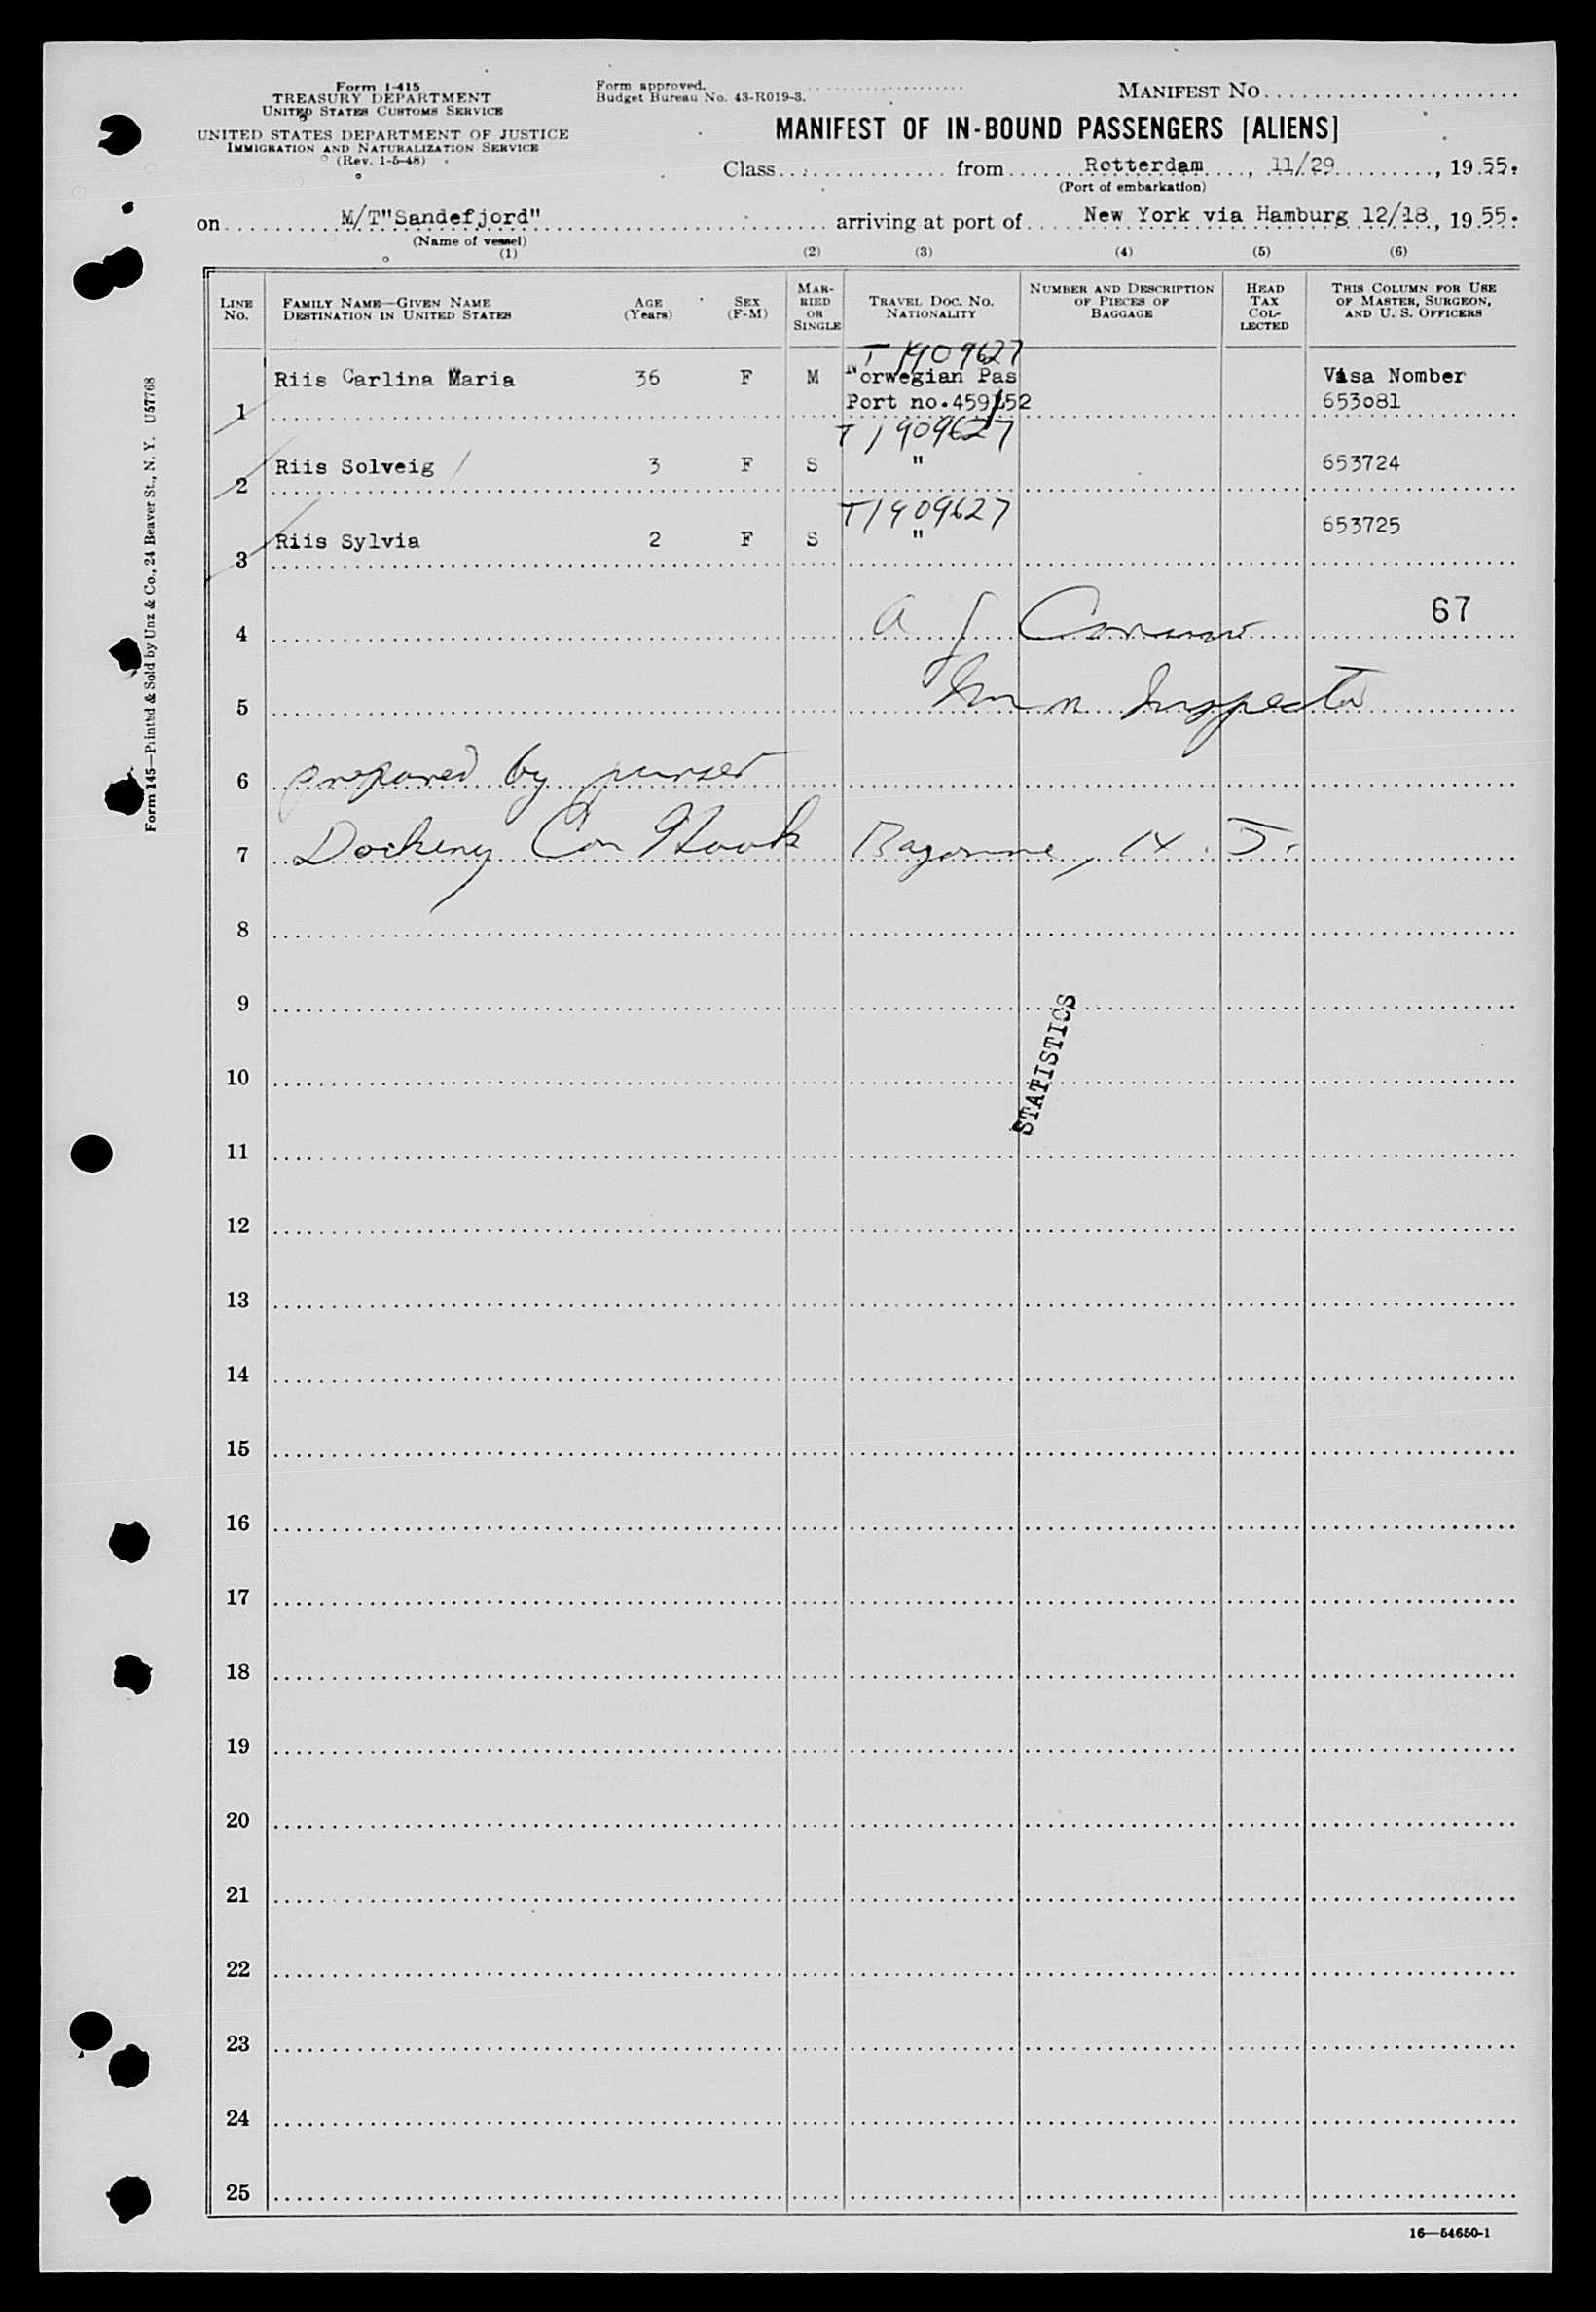 Form I-415
TREASURY DEPARTMENT
UNITED STATES CUSTOMS SERVICE
UNITED STATES DEPARTMENT OF JUSTICE
IMMIGRATION AND NATURALIZATION SERVICE
(Rev. 1-5-48)
Form approved.
Budget Bureau No. 43-R019-3.
MANIFEST NO
MANIFEST OF IN-BOUND PASSENGERS [ALIENS]
Class from Rotterdam, 11/29, 1955.
(Port of embarkation)
on M/T"Sandefjord" arriving at port of New York via Hamburg 12/18, 1955.
(Name of vessel)
(1) (2) (3) (4) (5) (6)
LINE NO.
FAMILY NAME—GIVEN NAME
DESTINATION IN UNITED STATES
AGE (Years)
SEX (F-M)
MARRIED OR SINGLE
TRAVEL DOC. NO.
NATIONALITY
NUMBER AND DESCRIPTION OF PIECES OF BAGGAGE
HEAD TAX COLLECTED
THIS COLUMN FOR USE OF MASTER, SURGEON, AND U. S. OFFICERS
T 1909627
Riis Carlina Maria 36 F M Norwegian Pas Visa Nomber
1 Port no.459152 653081
T1909627
2 Riis Solveig 3 F S " 653724
T1909627
3 Riis Sylvia 2 F S " 653725
4 a j 67
5 Imm Inspector
6 prepared by purser
7 Docking Con Hook Bayonne, N. J.
8
9
STATISTICS
10
11
12
13
14
15
16
17
18
19
20
21
22
23
24
25
16—54650-1
Form 145—Printed & Sold by Unz & Co., 24 Beaver St., N. Y. U57768